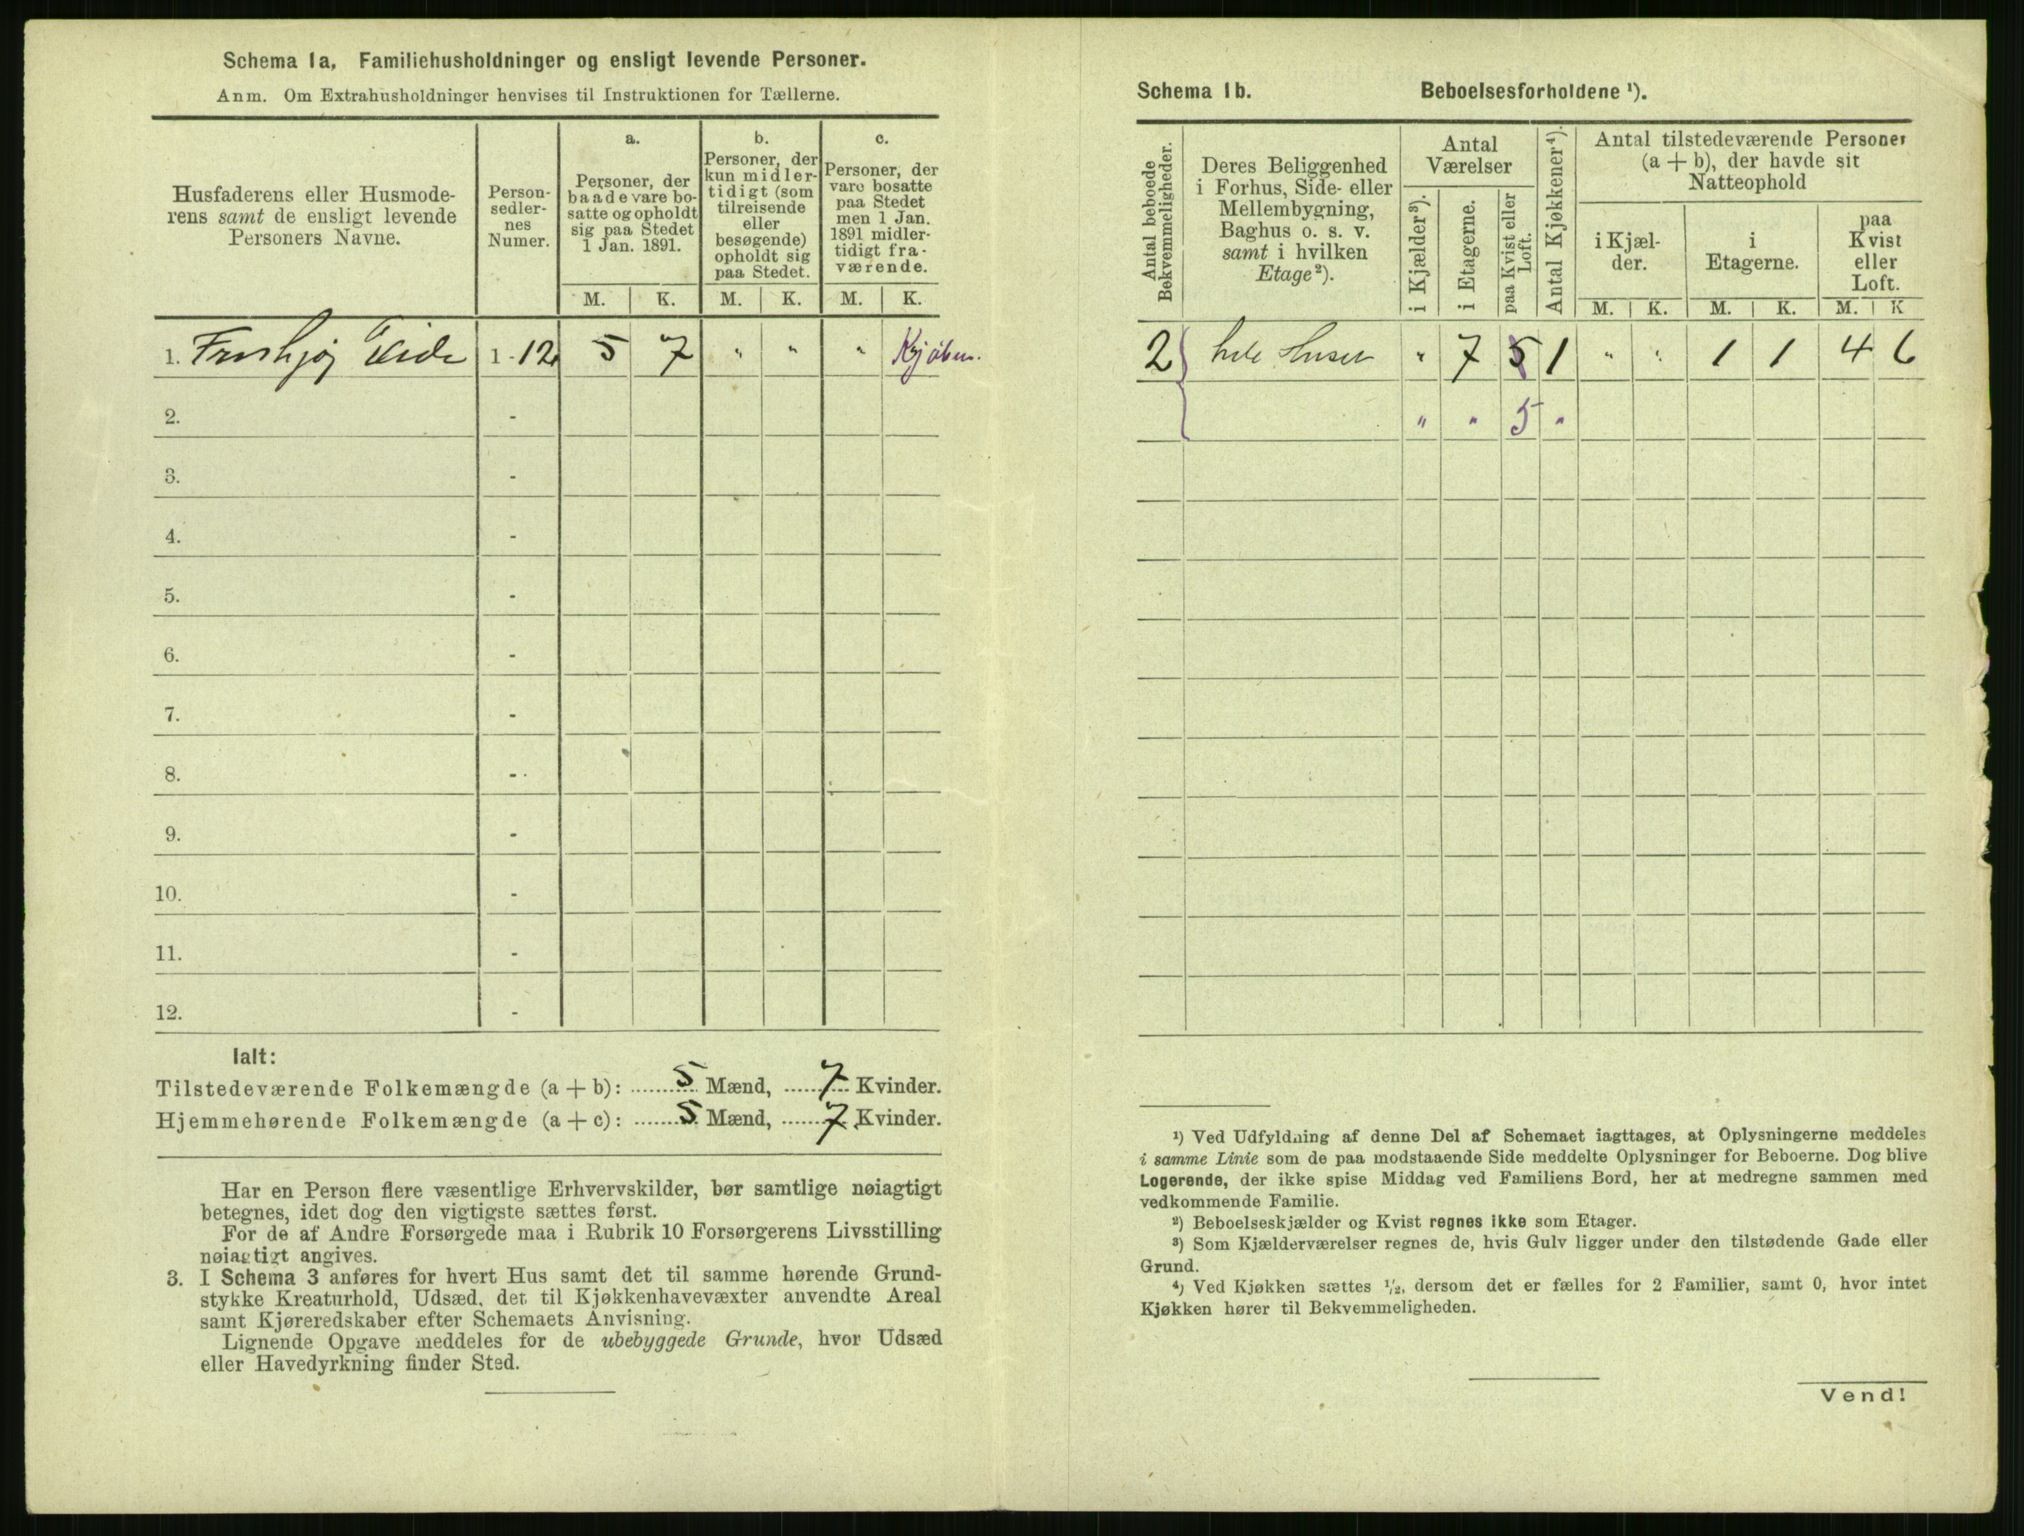 Schema 1a, Familiehusholdninger og ensligt levende Personer.
Anm. Om Extrahusholdninger henvises til Instruktionen for Tællerne.
Husfaderens eller Husmode-
rens samt de ensligt levende
Personers Navne.
Person-
sedler-
nes
Numer.
a.
Personer, der
baade vare bo-
satte og opholdt
sig paa Stedet
1 Jan. 1891.
b.
Personer, der
kun midler-
tidigt (som
tilreisende
eller
besøgende)
opholdt sig
paa Stedet.
c.
Personer, der
vare bosatte
paa Stedet
men 1 Jan.
1891 midler-
tidigt fra-
værende.
M. K. M. K. M. K.
1. Eide 1-12 5 7 " " "
2. -
3. -
4. -
5. -
6. -
7. -
8. -
9. -
10. -
11. -
12. -
Ialt:
Tilstedeværende Folkemængde (a + b): 5 Mænd, 7 Kvinder.
Hjemmehørende Folkemængde (a + c): 5 Mænd, 7 Kvinder.
Har en Person flere væsentlige Erhvervskilder, bør samtlige nøiagtigt
betegnes, idet dog den vigtigste sættes først.
For de af Andre Forsørgede maa i Rubrik 10 Forsørgerens Livsstilling
nøiagtigt angives.
3. I Schema 3 anføres for hvert Hus samt det til samme hørende Grund-
stykke Kreaturhold, Udsæd, det til Kjøkkenhavevæxter anvendte Areal
samt Kjøreredskaber efter Schemaets Anvisning.
Lignende Opgave meddeles for de ubebyggede Grunde, hvor Udsæd
eller Havedyrkning finder Sted.
Schema 1b. Beboelsesforholdene ¹).
Antal beboede
Bekvemmeligheder.
Deres Beliggenhed
i Forhus, Side- eller
Mellembygning,
Baghus o. s. v.
samt i hvilken
Etage²).
Antal
Værelser
i Kjælder³).
i Etagerne.
paa Kvist eller
Loft.
Antal Kjøkkener⁴).
Antal tilstedeværende Personer
(a + b), der havde sit
Natteophold
i Kjæl-
der.
i
Etagerne.
paa
Kvist
eller
Loft.
M. K. M. K. M. K
2 hele Huset " 7 5 1 " " 1 1 4 6
" " 5 "
¹) Ved Udfyldning af denne Del af Schemaet iagttages, at Oplysningerne meddeles
i samme Linie som de paa modstaaende Side meddelte Oplysninger for Beboerne. Dog blive
Logerende, der ikke spise Middag ved Familiens Bord, her at medregne sammen med
vedkommende Familie.
²) Beboelseskjælder og Kvist regnes ikke som Etager.
³) Som Kjælderværelser regnes de, hvis Gulv ligger under den tilstødende Gade eller
Grund.
⁴) Ved Kjøkken sættes ¹/₂, dersom det er fælles for 2 Familier, samt 0, hvor intet
Kjøkken hører til Bekvemmeligheden.
Vend!